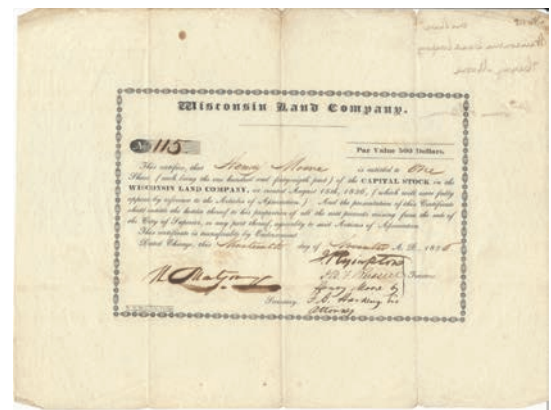 Wisconsin Land Company.
No 115
Par Value 500 Dollars.
This certifies, that Henry Moore is entitled to One
Share (each being the one hundred and forty-eighth part) of the CAPITAL STOCK in the
WISCONSIN LAND COMPANY, as created August 15th, 1836, (which will more fully
appear by reference to the Articles of Association.) And the presentation of this Certificate
shall entitle the bearer thereof to his proportion of all the nett proceeds arising from the sale of
the City of Superior, or any part thereof, agreeably to said Articles of Association.
This certificate is transferable by Endorsement.
Dated Chicago, this day of A. D. 183
Trustees
Henry Moore by
Secretary.
Attorney